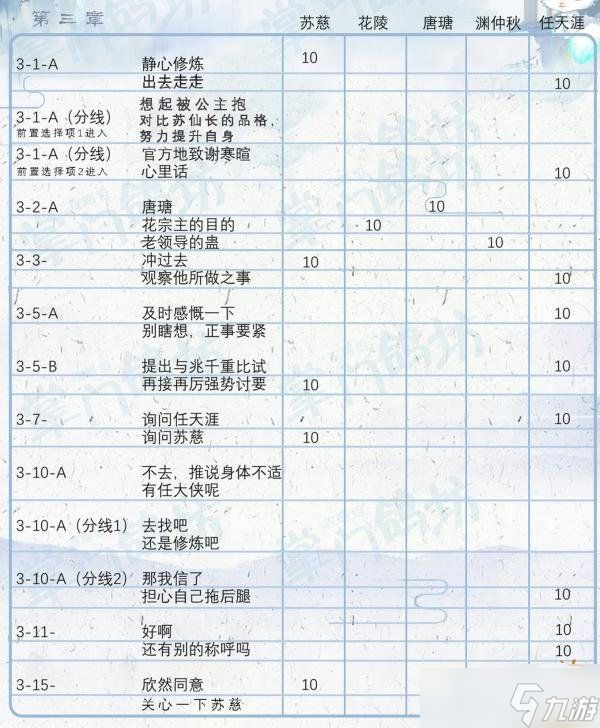 第三章 苏慈 花陵 唐瑭 渊仲秋 任天涯
3-1-A 静心修炼 10
出去走走 10
想起被公主抱
3-1-A（分线） 对比苏仙长的品格，
前置选择项1进入 努力提升自身
3-1-A（分线） 官方地致谢寒暄
前置选择项2进入 心里话 10
3-2-A 唐瑭 10
花宗主的目的 10
老领导的蛊 10
3-3- 冲过去 10
观察他所做之事 10
3-5-A 及时感慨一下 10
别瞎想，正事要紧
3-5-B 提出与兆千重比试 10
再接再厉强势讨要 10
3-7- 询问任天涯 10
询问苏慈 10
3-10-A 不去，推说身体不适
有任大侠呢
3-10-A（分线1） 去找吧
还是修炼吧
3-10-A（分线2） 那我信了
担心自己拖后腿 10
3-11- 好啊 10
还有别的称呼吗 10
3-15- 欣然同意 10
关心一下苏慈
九游
掌门鸽坊